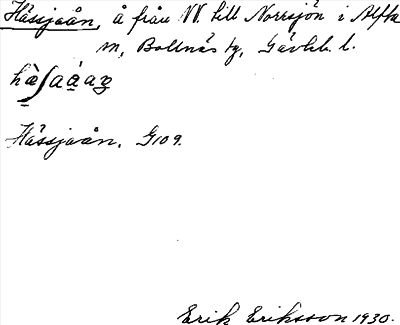 Hässjaån, å från VV. till Norrsjön i Alfta
sn, Bollnäs tg, Gävleb. l.
Hässjaån. G109.
Erik Eriksson 1930.